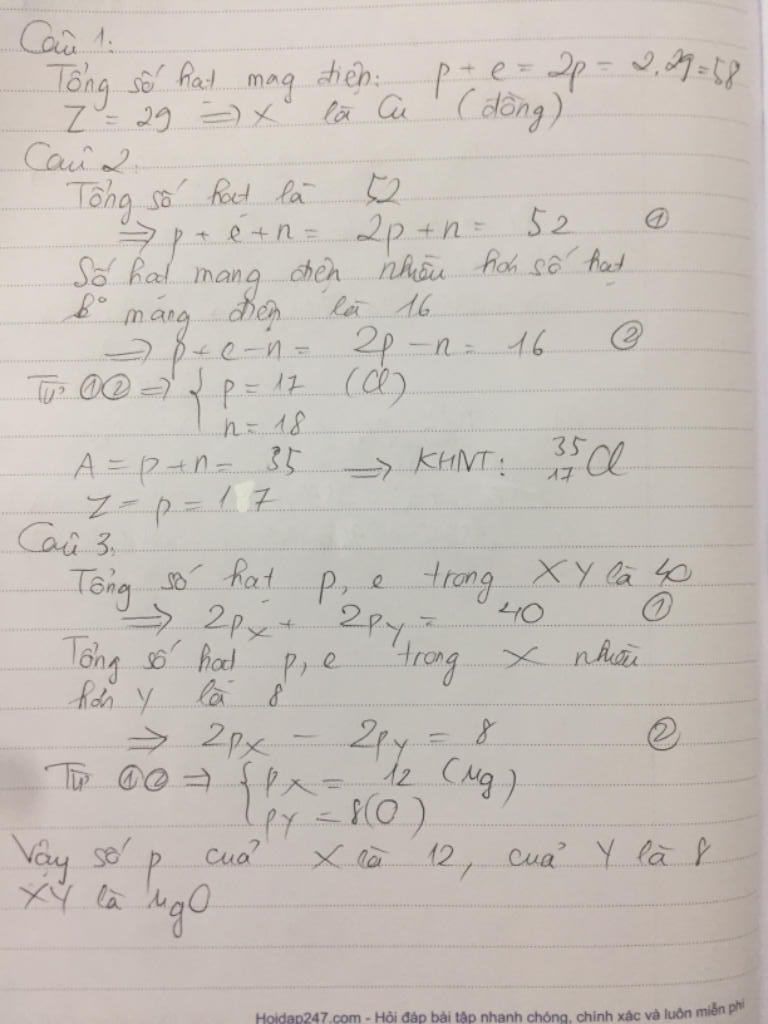 Câu 1:
Tổng số hạt mag điện: p + e = 2p = 2.29=58
Z = 29 => X là Cu (đồng)
Câu 2.
Tổng số hạt là 52
=> p + e + n = 2p + n = 52 ①
Số hạt mang điện nhiều hơn số hạt
k° mang điện là 16
=> p + e - n = 2p - n = 16 ②
Từ ①② => { p = 17 (Cl)
n = 18
A = p + n = 35 => KHNT: ³⁵₁₇Cl
Z = p = 17
Câu 3.
Tổng số hạt p, e trong XY là 40
=> 2pX + 2pY = 40 ①
Tổng số hạt p, e trong X nhiều
hơn Y là 8
=> 2pX - 2pY = 8 ②
Từ ①② => { pX = 12 (Mg)
pY = 8(O)
Vậy số p của X là 12, của Y là 8
XY là MgO
Hoidap247.com - Hỏi đáp bài tập nhanh chóng, chính xác và luôn miễn phí